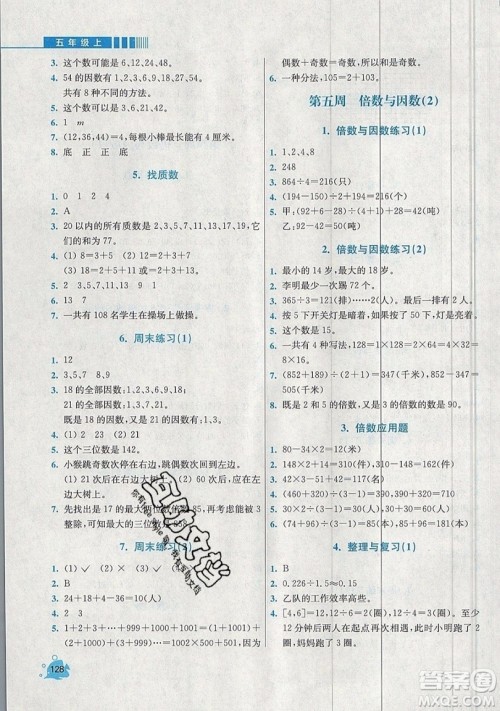 五年级上
3. 这个数可能是 6、12、24、48。
4. 54 的因数有 1、2、3、6、9、18、27、54。
共有 8 种不同的方法。
5. 这个数可能是 3、21、24、42。
6. 1 m
7. (12,36,44)=4,每根小棒最长 4 厘米。
8. 底 正 正 底
5. 找质数
1. 0 1 2 4
2. A
3. 20 以内的所有质数是 2、3、5、7、11、13、17、19,它
们的和为 77。
4. (1) 8=3+5 (2) 12=5+7
(3) 18=5+13
5. (1) 18=2+5+11 (2) 21=3+5+13
6. 13 7
7. 一共有 108 名学生在操场上做操。
6. 周末练习(1)
1. 12
2. B
3. 18 的全部因数:1,2,3,6,9,18。
21 的全部因数:1,3,7,21。
既是 18 的因数,又是 21 的因数有:1,3。
4. (1) 23 (2) 23
5. 这个三位数是 142。
6. 小猴跳奇数次停在右边,跳偶数次停在左边。跳
35 次后,在右边大树上。跳 100 次后,在左边
大树上。
7. 先找出是 17 的最大两位数倍数 85,再用 3
整除,可知这个三位数是 853。
7. 周末练习(2)
1. (1) ✓ (2) × (3) ✓
2. B
3. 24+18+4-10=36(人)
4. 2 3
5. 1+2+3+……+999+1000=(1+999)+(2
+998)+……+1000=1000×500+500,和为
偶数。
偶数+奇数=奇数,奇数+奇数=偶数。
6. 一种分法。105=2+103。
第五周 倍数与因数(2)
1. 倍数与因数练习(1)
1. 1,2,4,8
2. 48
3. 864÷4=216(只) 不能
4. (150-2)÷2÷2+150=194(元)
5. 甲:(60-2)÷2+2=31(吨)
乙:60-2-31=27(吨)
2. 倍数与因数练习(2)
1. 最小的 14 岁,最大的 18 岁。
2. 李明最少一次踢 22 个。
3. 365÷13=28(排)……1(人) 最少再来 12 人。
4. 按 5 下开关灯是暗着,如果按 100 下灯是亮着。
5. 这个数是 18。
6. 一共有 4 种写法,分别是 1+47=5+43=7+
41=11+37。
7. (852+189)÷(2+1)=347(千米)
852-347=505(千米)
8. 既是 2 的倍数,又是 3 的倍数的数是 90。
3. 倍数应用题
1. 80-34×2=12(只)
2. 148÷2+14=88(只)
3. 300÷(5-1)+300=375(千克)
4. 252÷(3+1)=63(人)
5. (90+15)÷(4+1)-15=6(元)
6. (74+96)÷(4+1)=34(本) 96-34=62(本)
4. 整理与复习(1)
1. (1) ✓ (2) × (3) ×
2. B
3. 0.226÷1.5≈0.15
4. 乙队的工作效率高些。
5. [4,6]=12 12÷4=3(圈) 12÷6=2(圈)
12 分钟后在起点再次相遇,此时小明跑了 3
圈,妈妈跑了 2 圈。
128
互助文档
答案圈
MXQE.COM